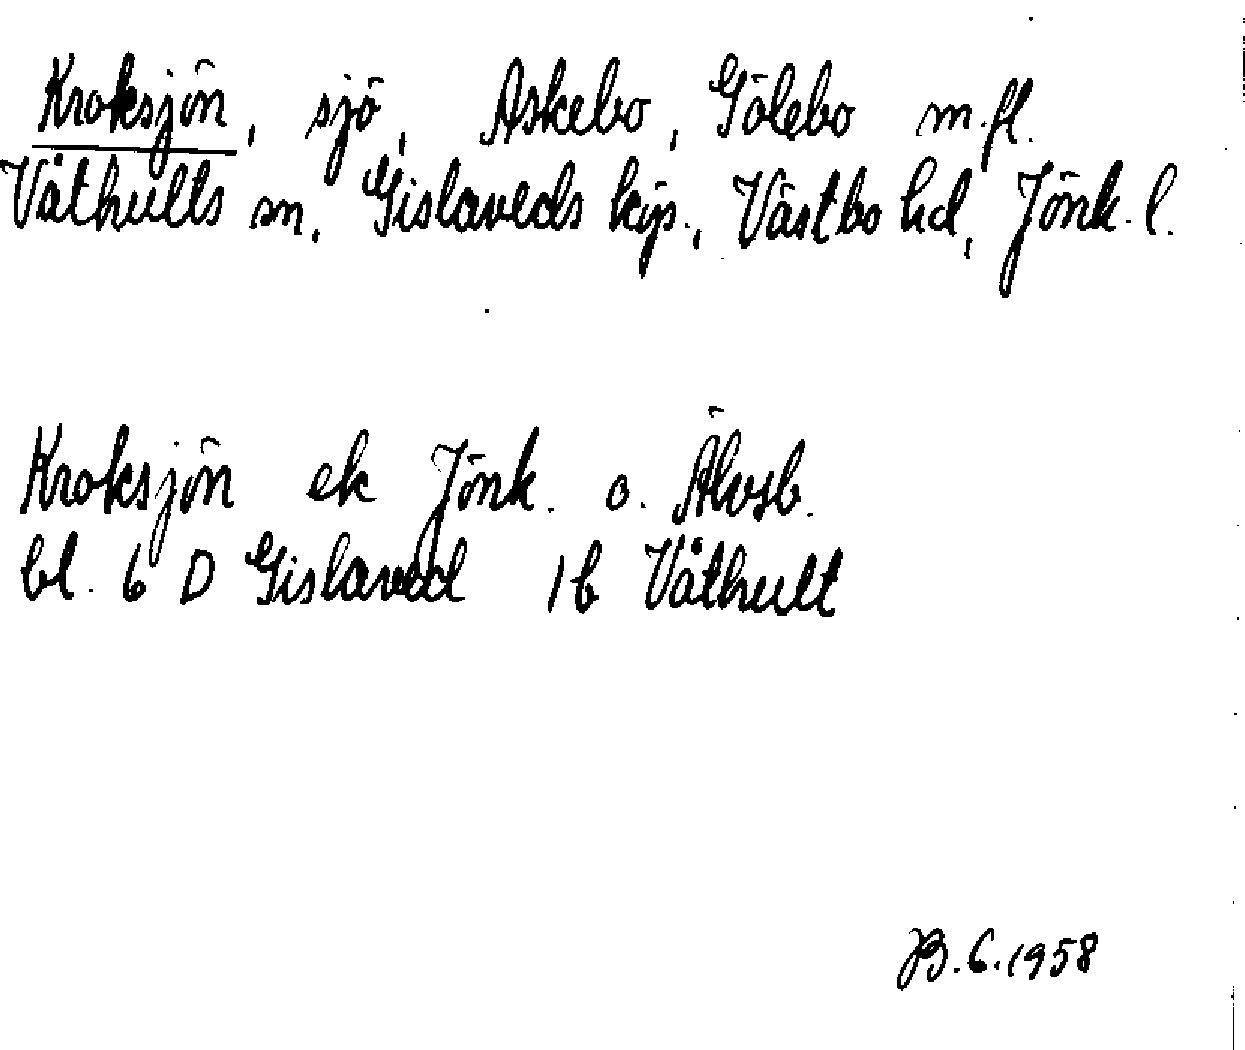 Kroksjön, sjö, Askebo, Gölebo m.fl.
Våthults sn, Gislaveds kӧp., Västbo hd, Jönk. l.
Kroksjön ek Jönk. o. Älvsb.
bl. 6 D Gislaved 1b Våthult
JB. 6. 1958